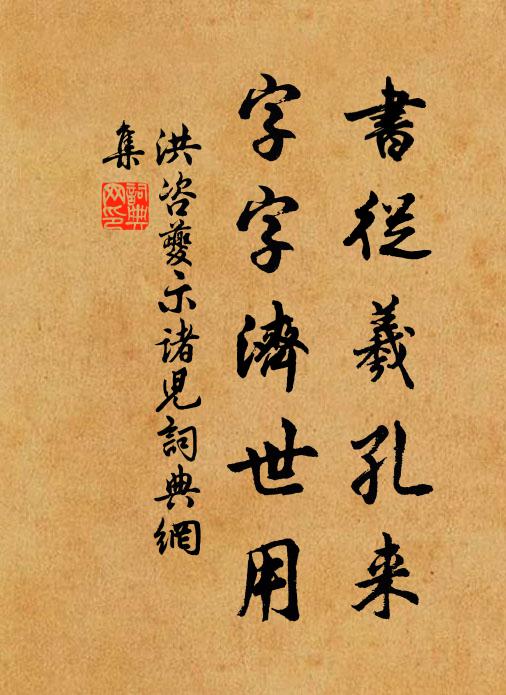 書從羲孔来
字字濟世用
洪咨夔示诸児詞典網
集
詞典
网印